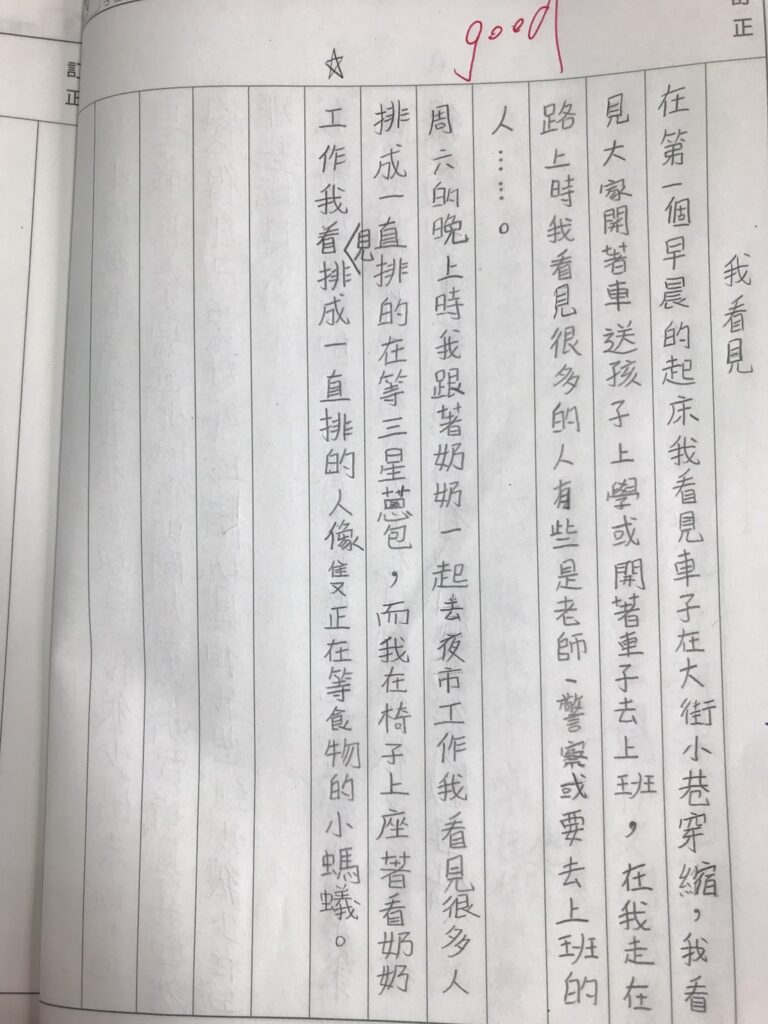 我看見
在第一個早晨的起床我看見車子在大街小巷穿縮，我看
見大家開著車送孩子上學或開著車子去上班，在我走在
路上時我看見很多的人有些是老師、警察或要去上班的
人……。
周六的晚上時我跟著奶奶一起去夜市工作我看見很多人
排成一直排的在等三星蔥包，而我在椅子上座著看奶奶
工作我看見排成一直排的人像隻正在等食物的小螞蟻。
☆
good
訂正
訂正